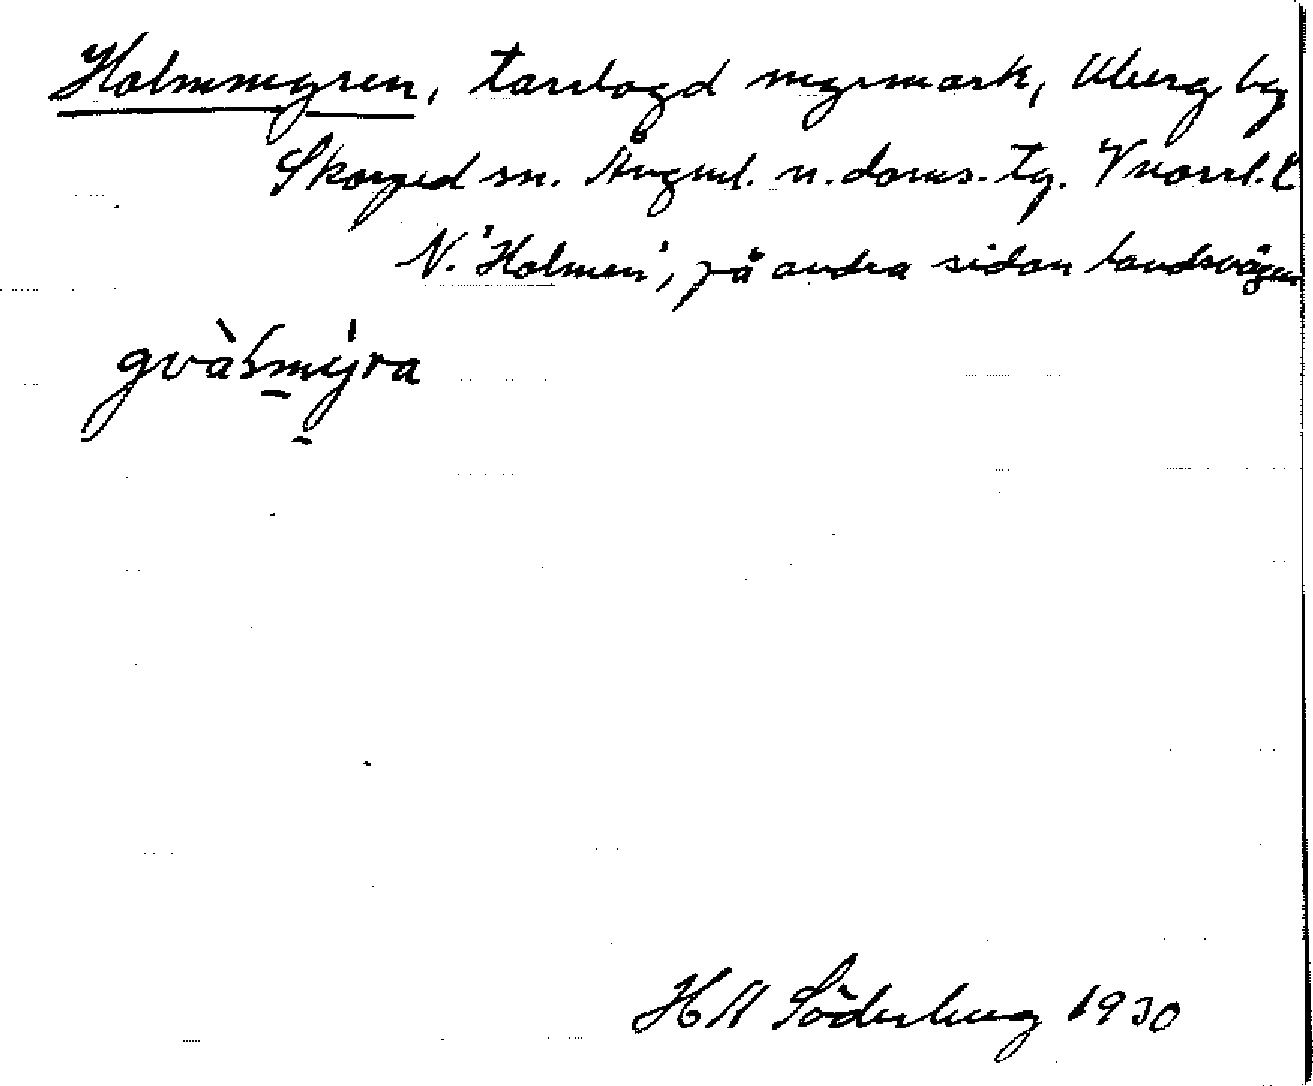 Holmmyren, torrlagd myrmark, Uberg by
Skorped sn. Ångml. n. doms. tg. Vnorrl. l
N. 'Holmen', på andra sidan landsvägen
gvàʃmy̍ra
HN Söderberg 1930